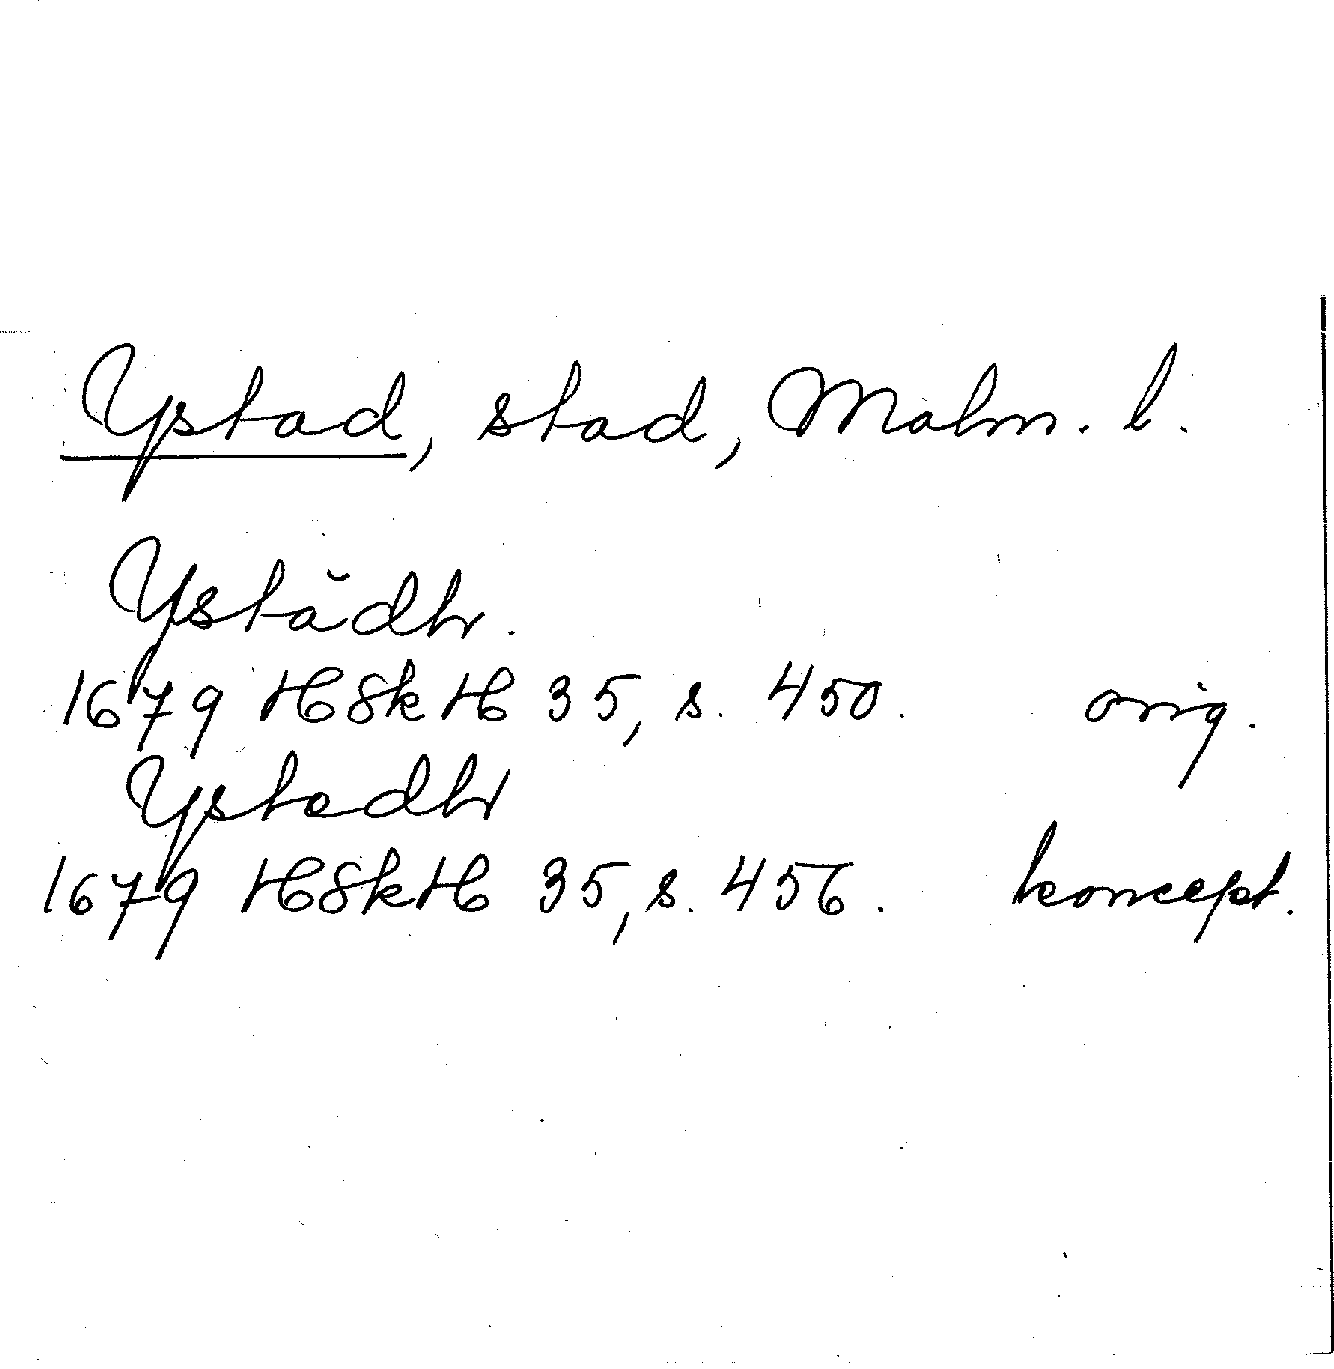 Ystad, stad, Malm. l.
Ystădh.
1679 HSkH 35, s. 450. orig.
Ystedh
1679 HSkH 35, s. 456. koncept.